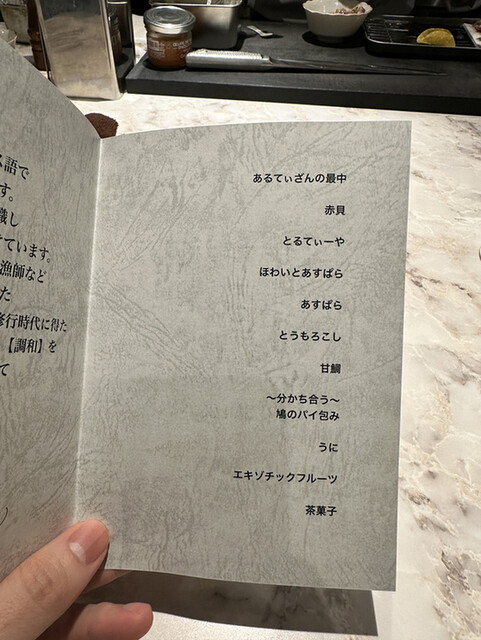 語で
す。
ています。
漁師など
た
修行時代に得た
【調和】を
て
あるてぃざんの最中
赤貝
とるてぃーや
ほわいとあすぱら
あすぱら
とうもろこし
甘鯛
〜分かち合う〜
鳩のパイ包み
うに
エキゾチックフルーツ
茶菓子